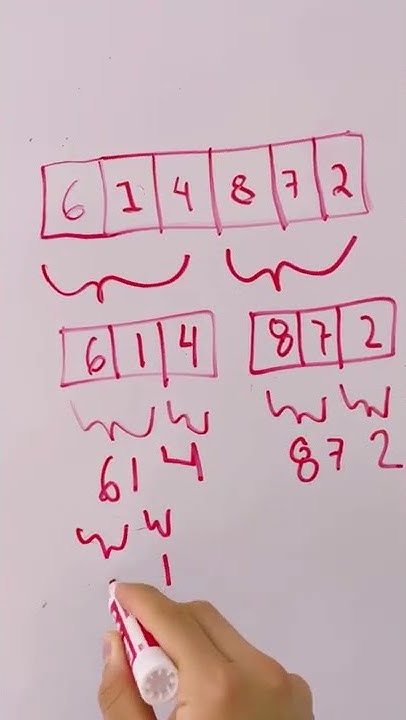 6 1 4 8 7 2
6 1 4 8 7 2
61 4 87 2
1